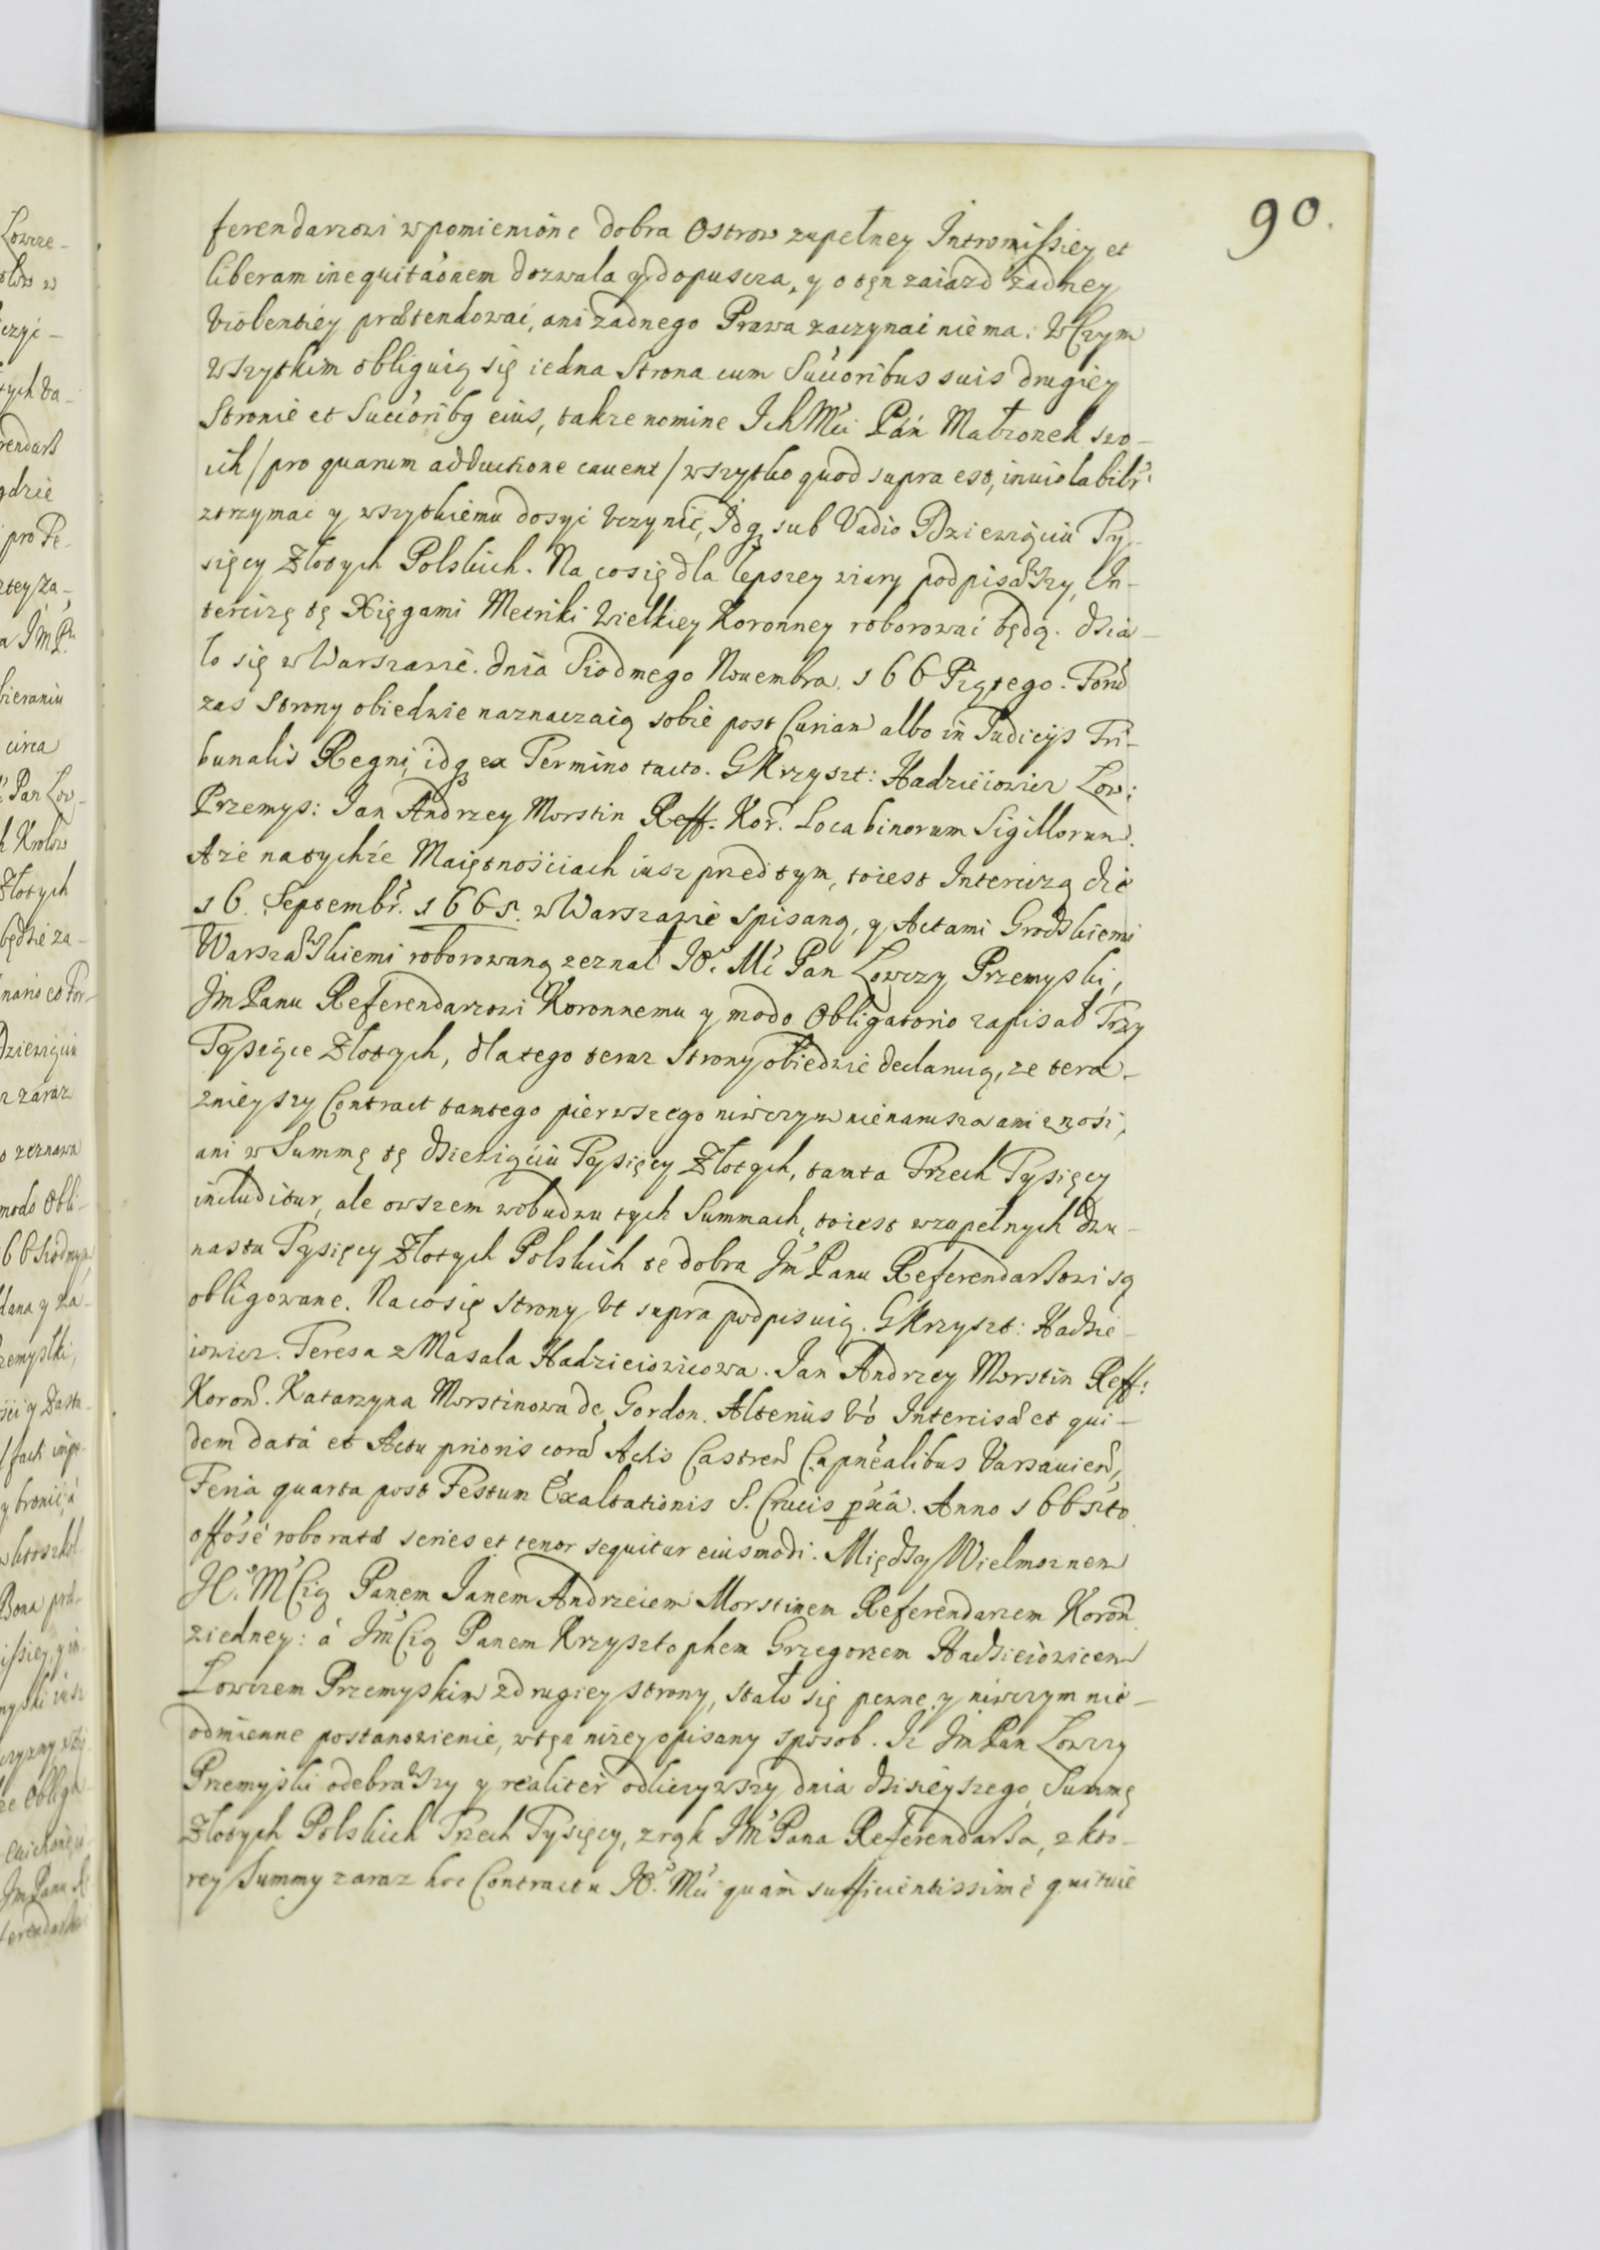 90.
ferendarzowi wpomienione dobra Ostrow zupełney Intromissiey et
liberam inequitaönem dozwala y dopuscza, y o ten zaiazd zadney
Violentiey prætendowac, ani zadnego Prawa zaczynac niema. W Czym
wszytkim obliguią się iedna Strona cum Succoribus suis drugiey
Stronie et Succoribg eius, takze nomine Ich Mci Pań Małzonek swo-
ich / pro quarum adductione cavent / wszytko quod supra est, inviolabilr
ztrzymac y wszytkiemu dosyc Vczynic, Idg sub Vadio Dziewiąciu Ty-
sięcy Złotych Polskich. Na co się dla lepszey wiary podpisawszy, In-
tercizę tę Xięgami Metriki Wielkiey Koronney roborowac będą. Dzia-
ło się w Warszawie. dnia Siodmego Nouembra. 166 Piątego. Forū
zas Strony obiedwie naznaczaią sobie post Curiam albo in Iudicijs Tri-
bunalis Regni, idg ex Termino tacto. G Krzyszt: Hadzieiowicz Low:
Przemys: Ian Andrzey Morstin Reff. Kor. Loca binorum Sigillorum.
A ze na tychze Maiętnościach iusz przed tym, toiest Intercizą die
16. Septembr. 1665. w Warszawie spisaną, y Actami Grodskiemi
Warszawskiemi roborowaną zeznał Ie. Mc Pan Lowczy Przemyski,
Jm Panu Referendarzowi Koronnemu y modo Obligatorio zapisał Trzy
Tysiące Złotych, dlatego teraz Strony obiedwie declaruią, ze tera-
znieyszy Contract tamtego pierwszego niwczym nienarusza ani znosi,
ani w Summę tę dziewiąciu Tysięcy Złotych, tamta Trzech Tysięcy
includitur, ale owszem wobudwu tych Summach, toiest wzupełnych dwu-
nastu Tysięcy Złotych Polskich te dobra Jm Panu Referendarzowi są
obligowane. Na co się Strony Vt supra podpisuią. G Krzyszt: Hadzie-
iowicz. Teresa z Masala Hadzieiowiczowa. Ian Andrzey Morstin Reff:
Koroñ. Katarzyna Morstinowa de Gordon. Alterius Vo Intercisæ et qui-
dem data et Actu prioris corā Actis Castreñ Capnealibus Varsavieñ,
Feria quarta post Festum Exaltationis S. Crucis pxa. Anno 1665to
offose roboratæ series et tenor sequitur eiusmodi. Między Wielmoznem
Ie. M Cią Panem Ianem Andrzeiem Morstinem Referendarzem Koroñ.
ziedney: á Jm Cią Panem Krzysztophem Grzegorzem Hadzieiowicem
Lowczem Przemyskim zdrugiey strony, stało się pewne y niwczym nie-
odmienne postanowienie, wten nizey opisany sposob. Iz Jm Pan Lowczy
Przemyski odebrawszy y realiter odliczywszy dnia dzisieyszego, Summę
Złotych Polskich Trzech Tysięcy, z rąk Jm Pana Referendarza, z kto-
rey Summy zaraz hoc Contractu Ie. Mci quam sufficientissime quituie